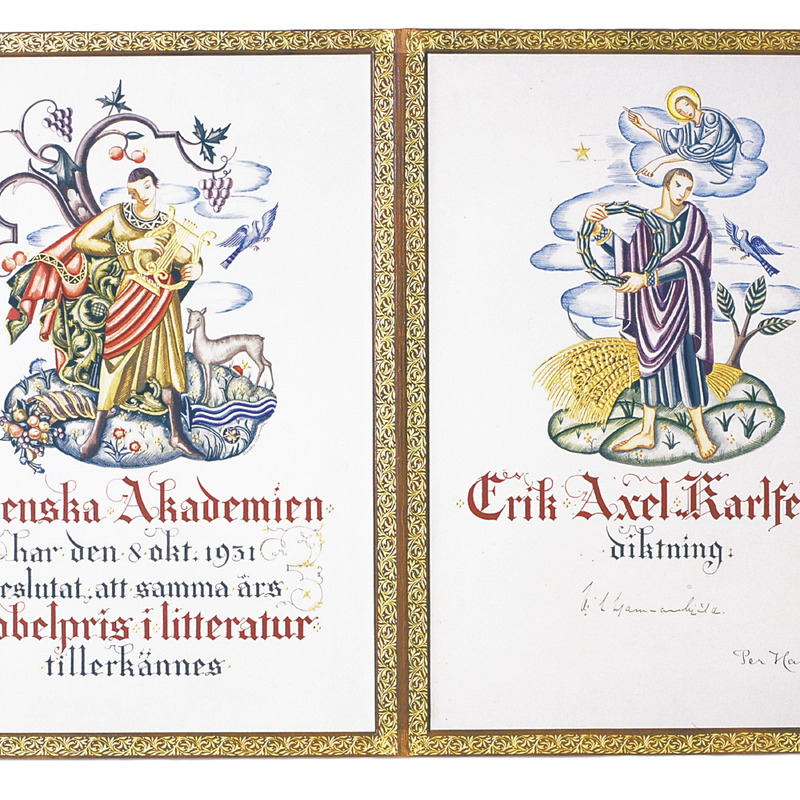 enska Akademien
har den 8 okt. 1931
eslutat att samma års
obelpris i litteratur
tillerkännes
Erik Axel Karlfe
diktning.
Per Ha